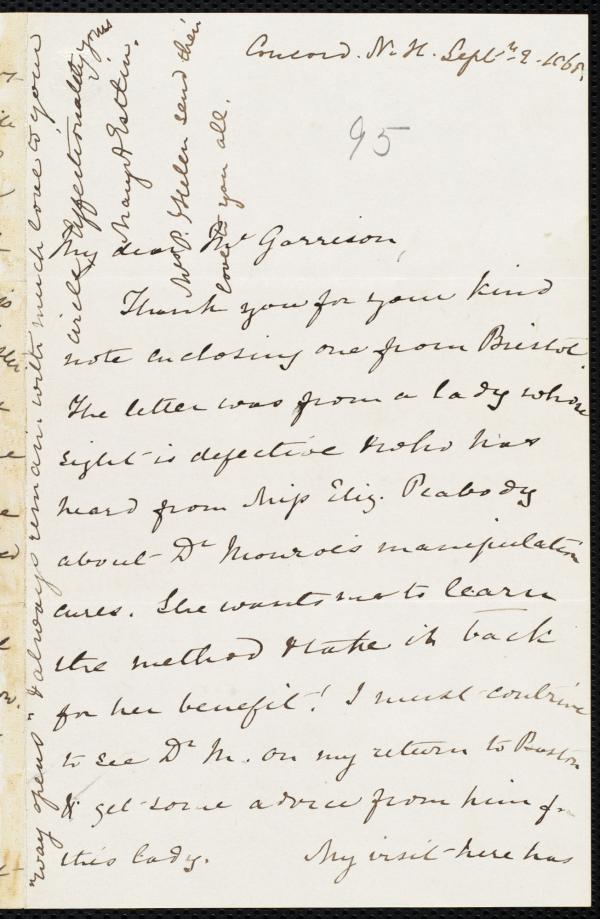 Concord. N. H. Septr 2. 1868.
95
My dear Mr Garrison,
Thank you for your kind
note enclosing one from Bristol.
The letter was from a lady whose
sight is defective & who has
heard from Miss Eliz. Peabody
about Dr Monroe's manipulation
cures. She wants me to learn
the method & take it back
for her benefit! I must contrive
to see Dr M. on my return to Boston
& get some advice from him for
this lady. My visit here has
"way opens" & always remain with much love to your
circle, affectionately yours
Mary A Estlin.
Mrs P. & Helen send their
love to you all.